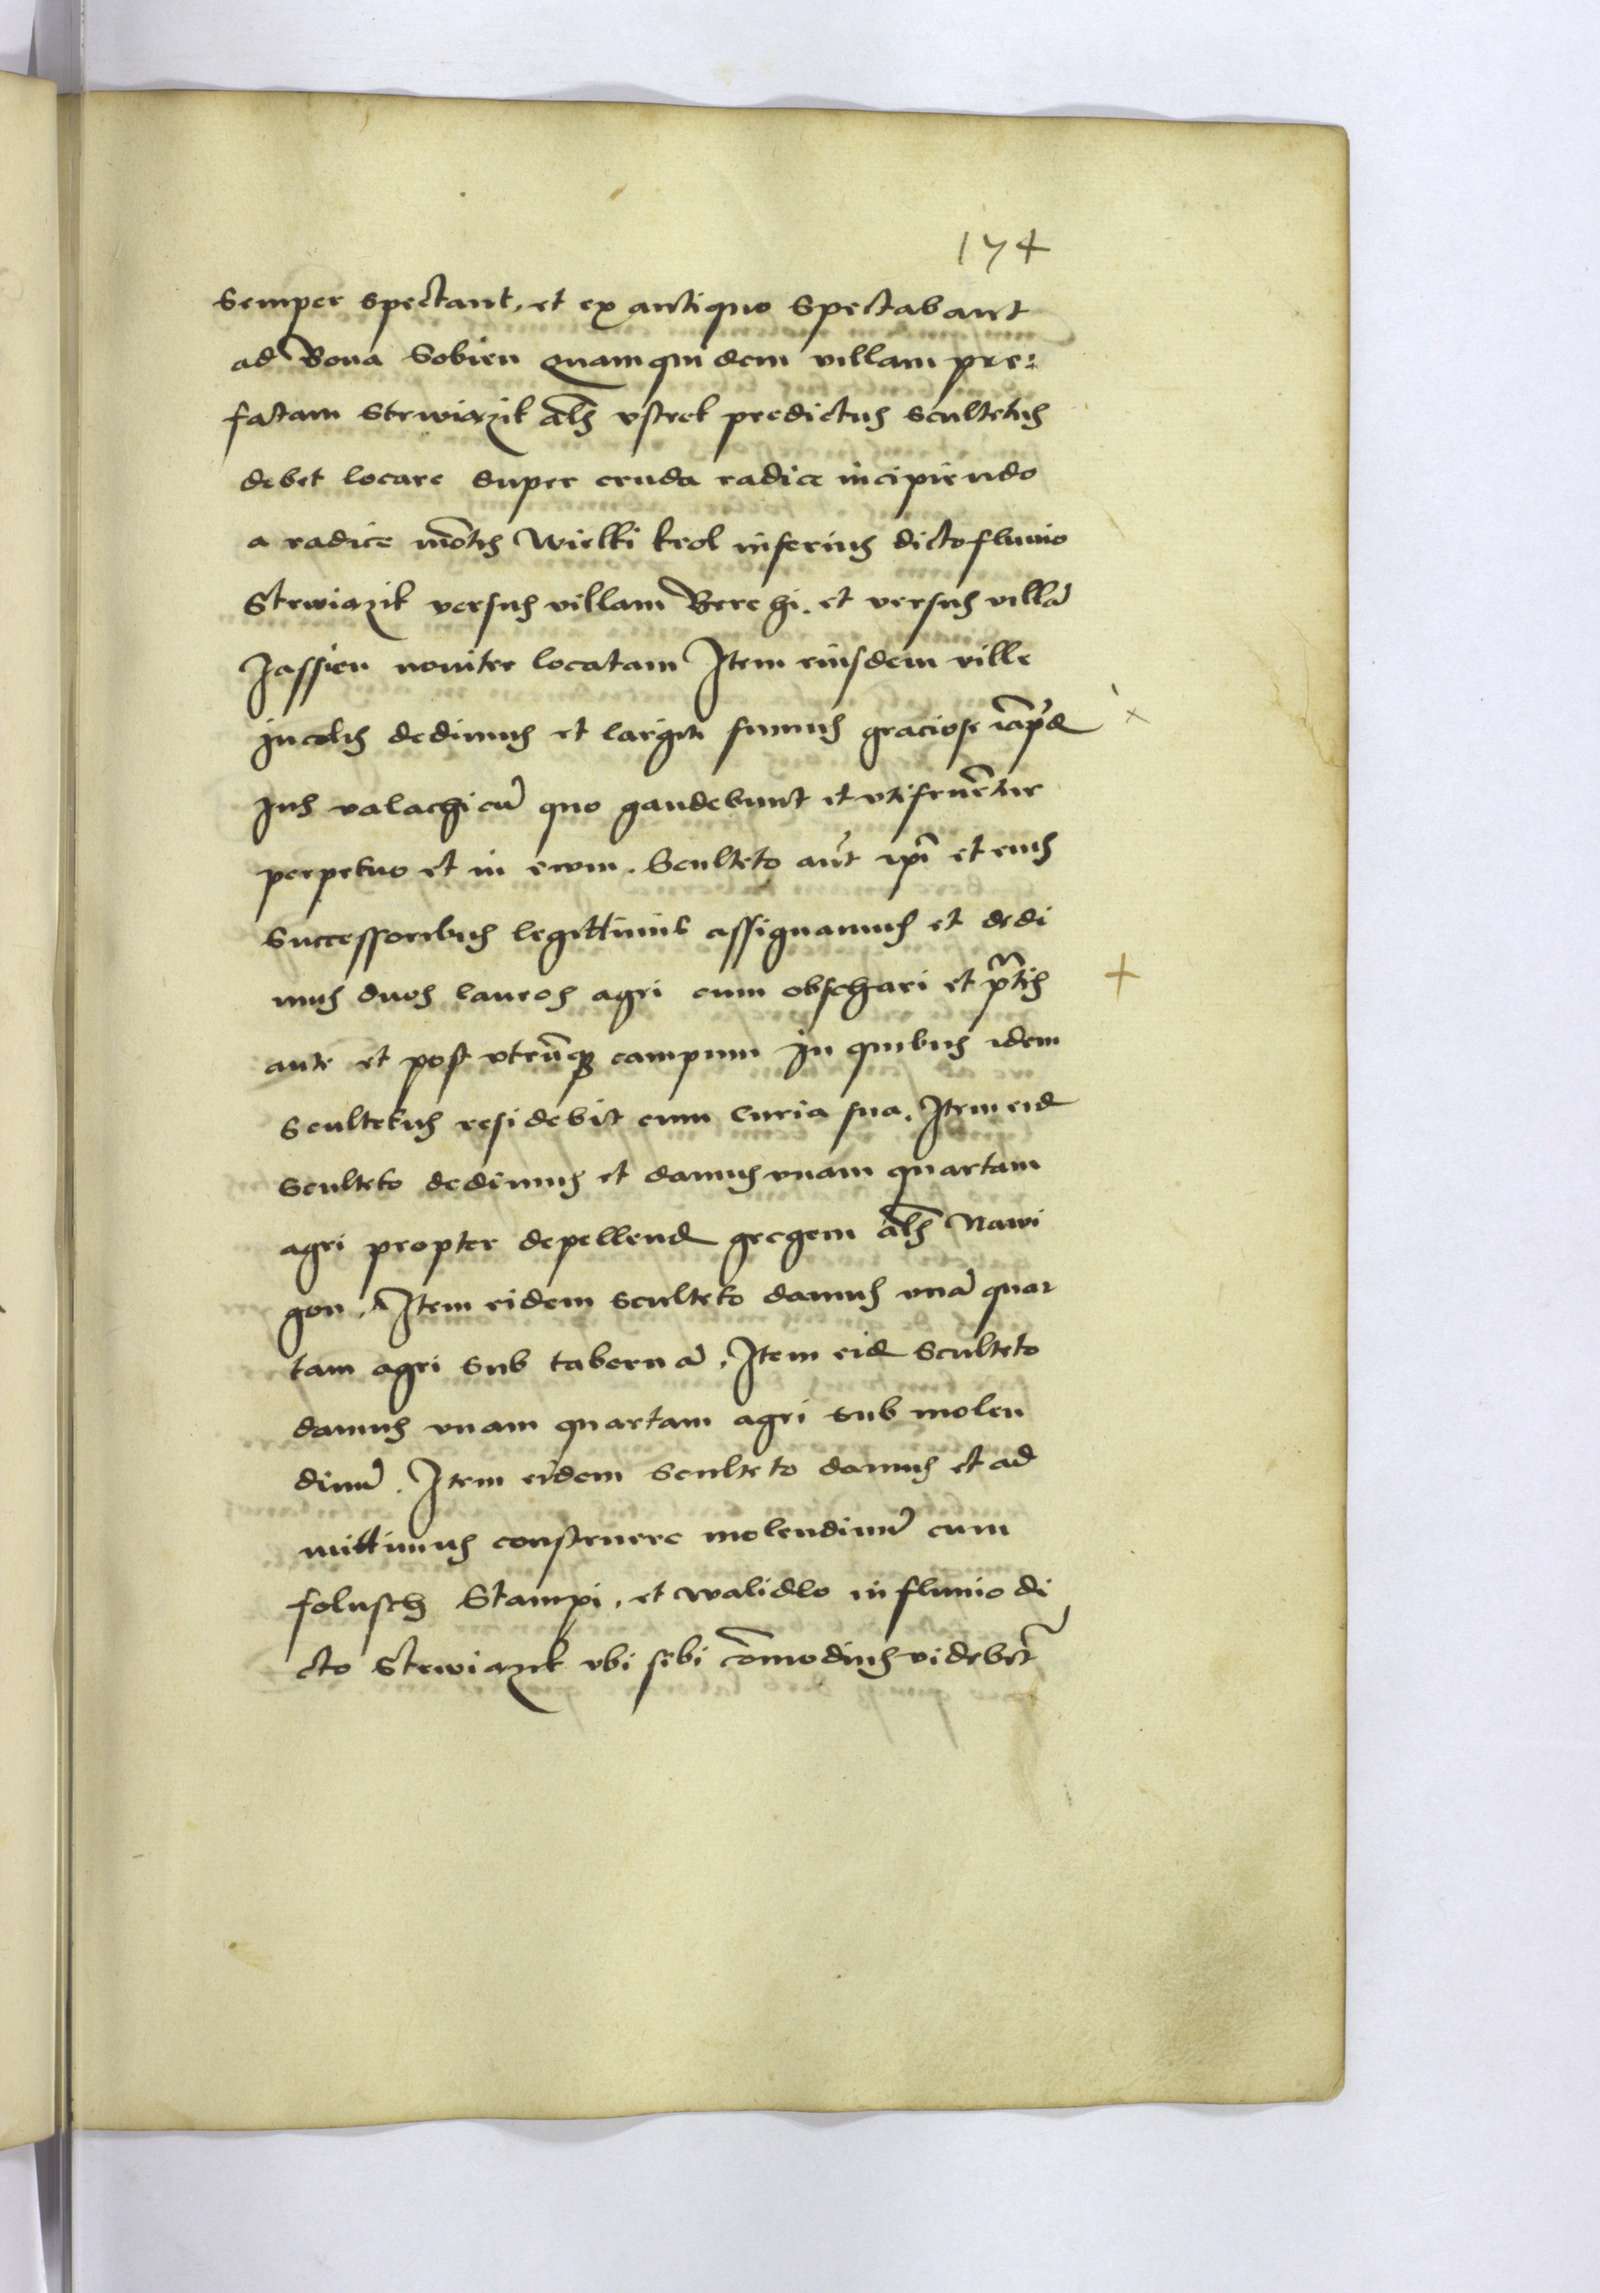 174
Semper spectant, et ex antiquo Spectabant
ad Bona Sobien quamquidem villam pre:
fatam Strwiazik als vstrek predictus scultetus
debet locare super cruda radice incipiendo
a radice motis Wielki krol inferius dicto fluuio
Strwiazik versus villam Berehi. et versus villa
Jassien nouiter locatam Item eiusdem ville
Incolis dedimus et largiti sumus graciose
Jus valachicu quo gaudebunt et vtifruetur
perpetuo et in ewm. Sculteto aut ipi et eius
Successoribus legittimis assignamus et dedi
mus duos laneos agri cum obschari et prtis
ante et post vtruq campum in quibus idem
Scultetus residebit cum Curia sua. Item eid
Sculteto dedimus et damus vnam quartam
agri propter depellend gregem als Nawi
gon. Item eidem sculteto damus vna quar
tam agri sub taberna. Item eid Sculteto
damus vnam quartam agri sub molen
dinu. Item eidem Sculteto damus et ad
mittimus construere molendinu cum
folusch Stampi, et walidlo in fluuio di
cto Strwiazik vbi sibi comodius videbit